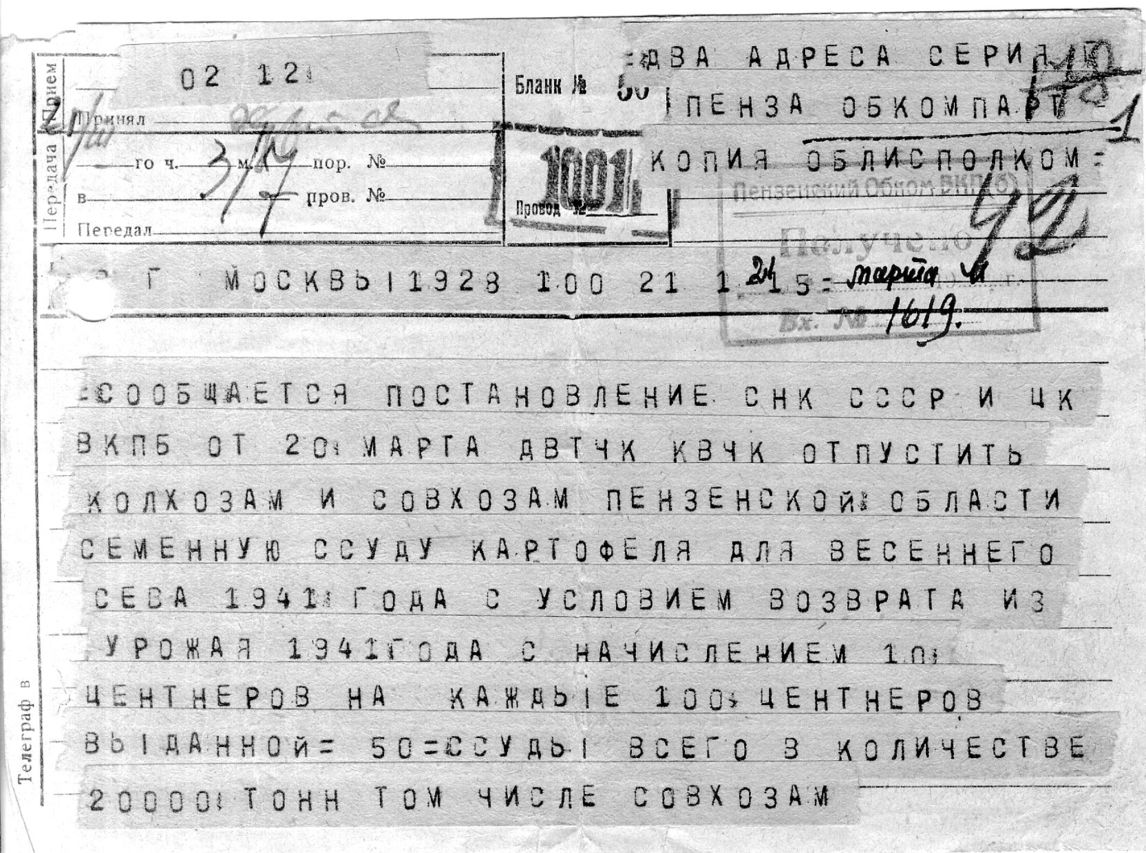 =ДВА АДРЕСА СЕРИЯ
ПЕНЗА ОБКОМПАРТ
КОПИЯ ОБЛИСПОЛКОМ=
02 12
Бланк № 50
Прием
Принял
го ч. м. пор. №
Передача
в пров. №
Передал
3/IV
1001
Провод №
1
42
Пензенский Обком ВКП(б)
Получено
24 марта
Вх. № 1619.
Г МОСКВЫ 1928 100 21 1 15=
=СООБЩАЕТСЯ ПОСТАНОВЛЕНИЕ СНК СССР И ЦК
ВКПБ ОТ 20 МАРТА ДВТЧК КВЧК ОТПУСТИТЬ
КОЛХОЗАМ И СОВХОЗАМ ПЕНЗЕНСКОЙ ОБЛАСТИ
СЕМЕННУЮ ССУДУ КАРТОФЕЛЯ ДЛЯ ВЕСЕННЕГО
СЕВА 1941 ГОДА С УСЛОВИЕМ ВОЗВРАТА ИЗ
УРОЖАЯ 1941 ГОДА С НАЧИСЛЕНИЕМ 10
ЦЕНТНЕРОВ НА КАЖДЫЕ 100 ЦЕНТНЕРОВ
ВЫДАННОЙ= 50=ССУДЫ ВСЕГО В КОЛИЧЕСТВЕ
20000 ТОНН ТОМ ЧИСЛЕ СОВХОЗАМ
Телеграф в